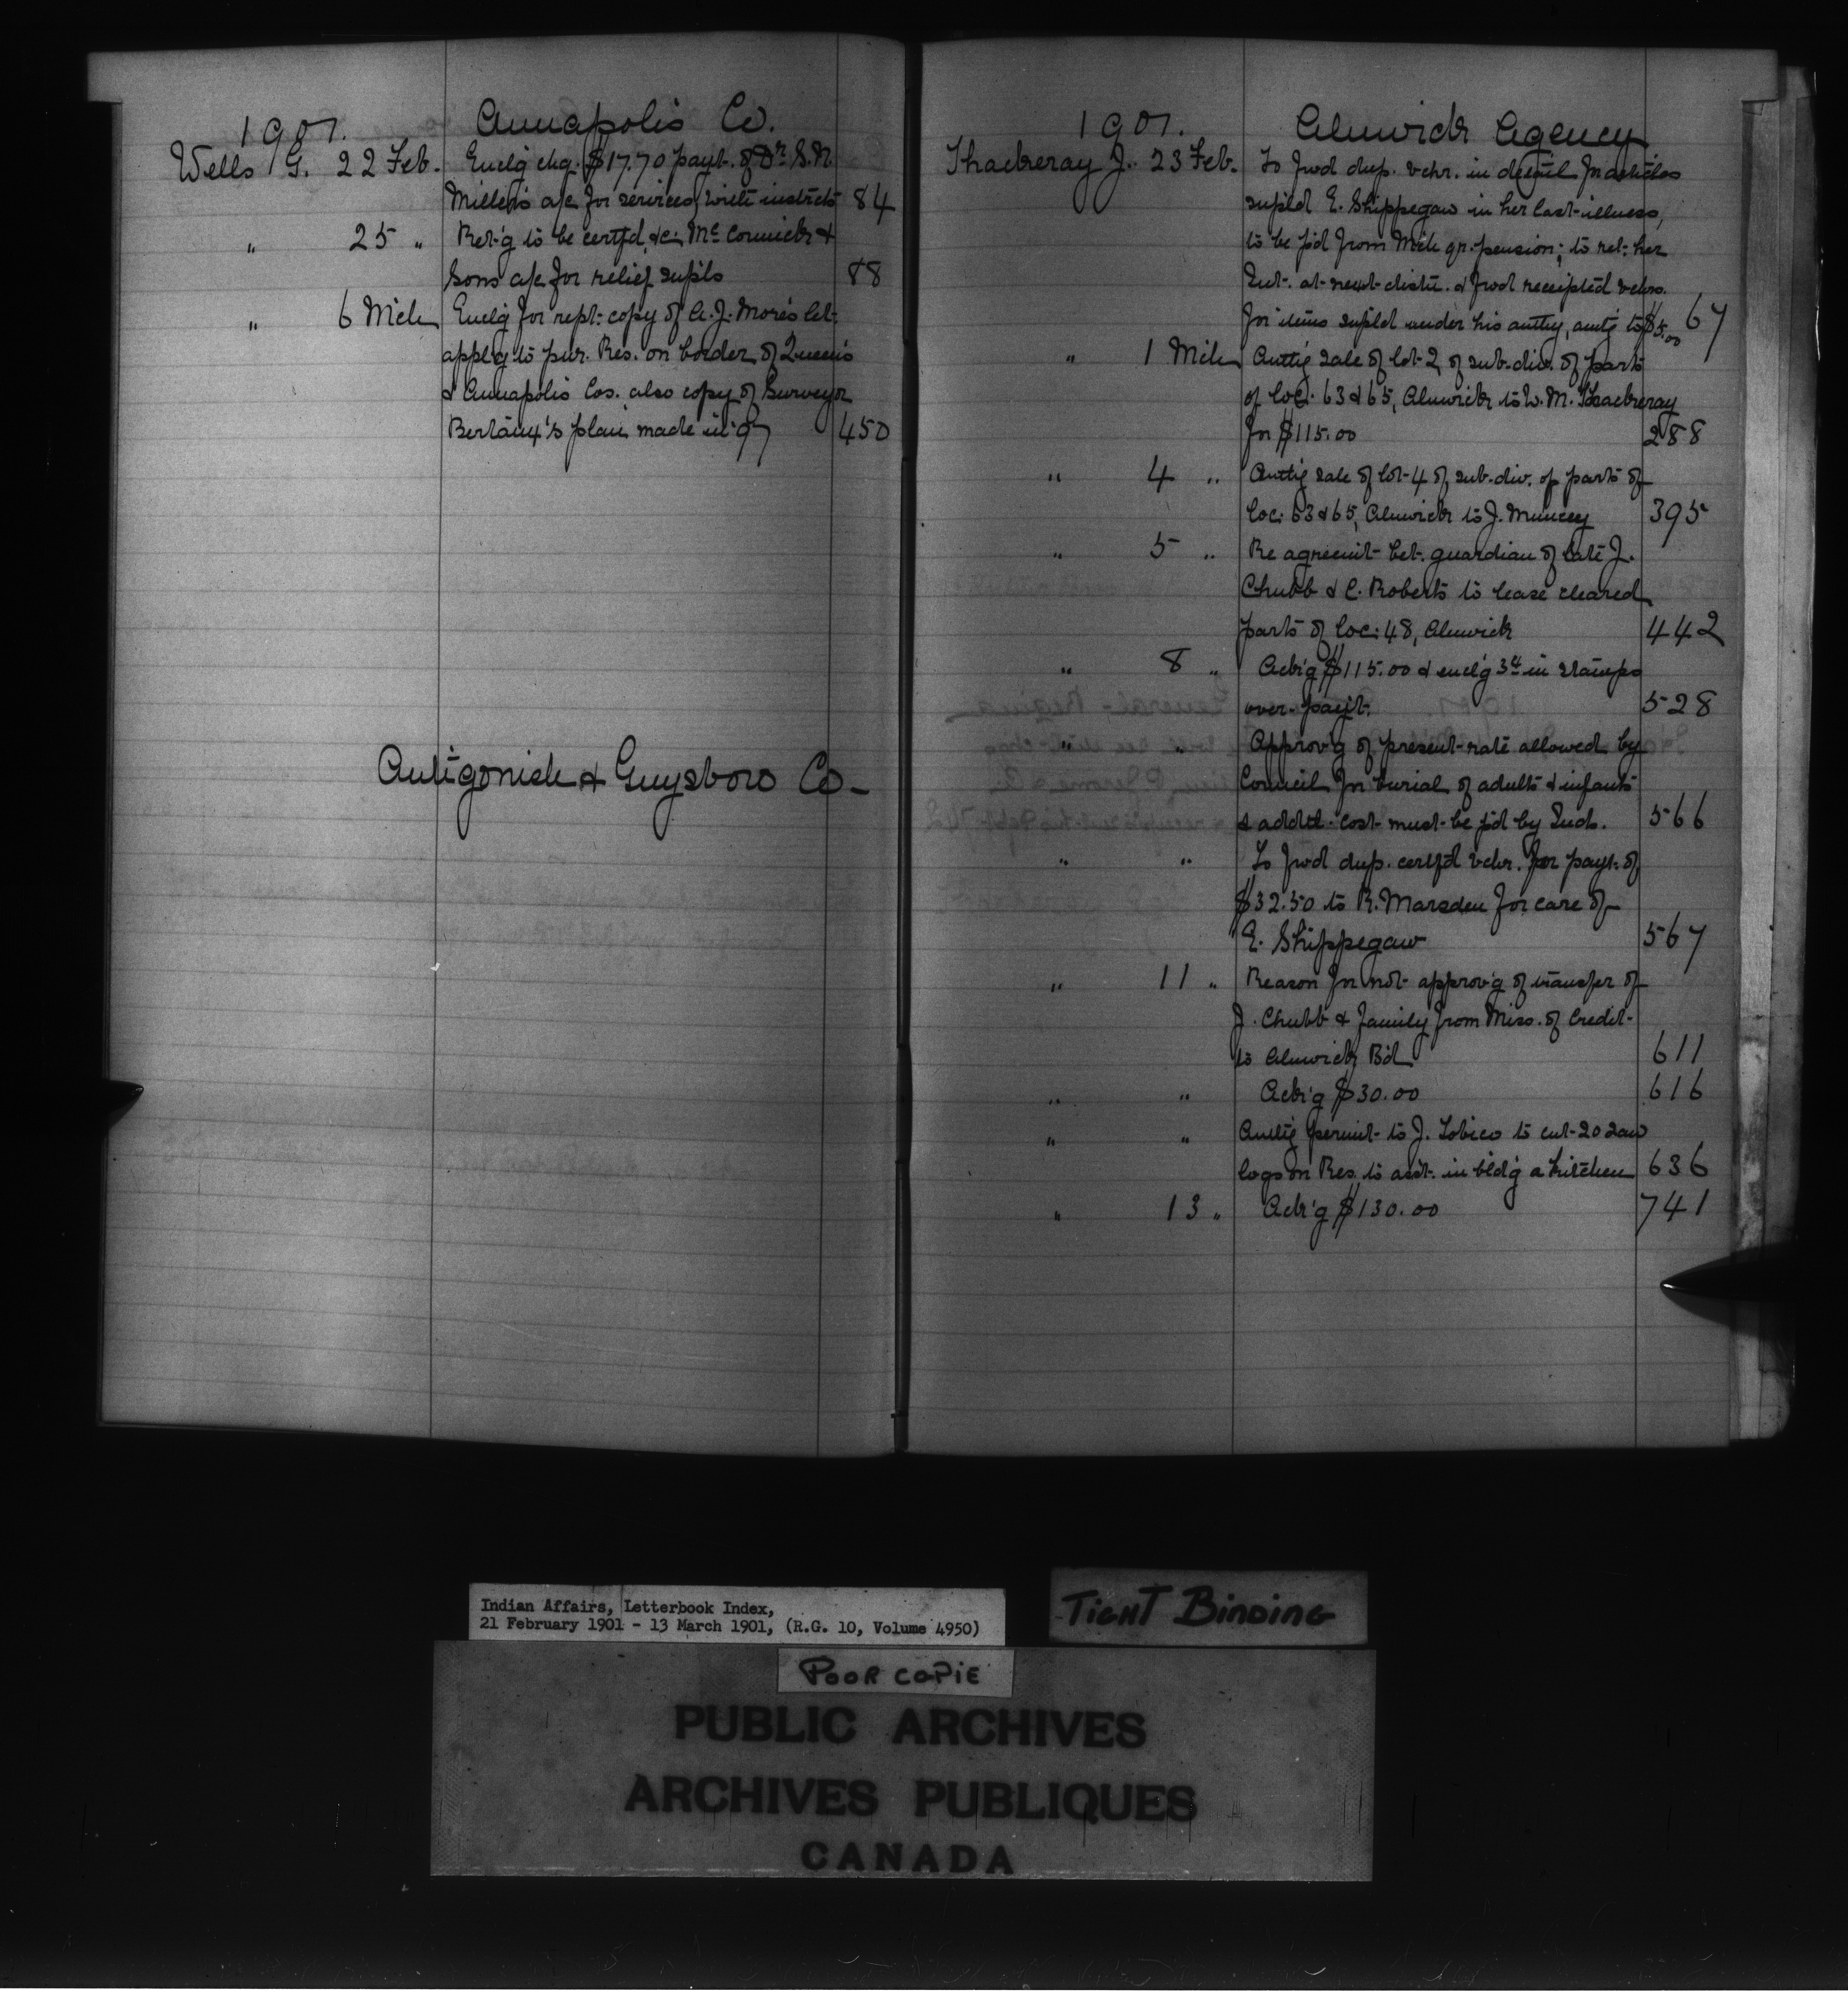 1901. Annapolis Co.
Wells G. 22 Feb. Encl'g chq. $17.70 payt. of Dr S. N.
Miller's a/c for services, with instrcts 84
" 25 " Ret'g to be certf'd, &c: McCormick &
Sons a/c for relief supls 88
" 6 Mch Encl'g for rept. copy of A. J. More's let.
appl'g to pur. Res. on border of Queen's
& Annapolis Cos. also copy of Surveyor
plan made in '97 450
Antigonish & Guysboro Co-
1901. Alnwick Agency
Thackeray J. 23 Feb. To fwd dup. vchr. in detail for articles
supl'd E. Shippegaw in her last illness,
to be p'd from Mch qr. pension; to ret. her
Int. at next distn. & fwd receipted vchrs.
for items supl'd under his authy, amtg to $5.00 67
" 1 Mch Auth'g sale of lot 2 of sub-div. of parts
of loc: 63 & 65, Alnwick to W. M. Thackeray
for $115.00 288
" 4 " Auth'g sale of lot 4 of sub-div. of parts of
loc: 63 & 65, Alnwick to J. Muncey 395
" 5 " Re agreemt bet. guardian of late J.
Chubb & C. Roberts to lease cleared
parts of loc: 48, Alnwick 442
" 8 " Ack'g $115.00 & encl'g 3¢ in stamps
over-payt. 528
" " Approv'g of present rate allowed by
Council for burial of adults & infants
& addtl. cost must be p'd by Inds. 566
" " To fwd dup. certf'd vchr. for payt. of
$32.50 to R. Marsden for care of
E. Shippegaw 567
" 11 " Reason for not approv'g of transfer of
J. Chubb & family from Miss. of Credit
to Alnwick B'd 611
" " Ack'g $30.00 616
" " Auth'g permit to J. Tobico to cut 20 saw
logs on Res. to asst. in bld'g a kitchen 636
" 13 " Ack'g $130.00 741
Indian Affairs, Letterbook Index,
21 February 1901 - 13 March 1901, (R.G. 10, Volume 4950)
TIGHT BINDING
POOR COPIE
PUBLIC ARCHIVES
ARCHIVES PUBLIQUES
CANADA